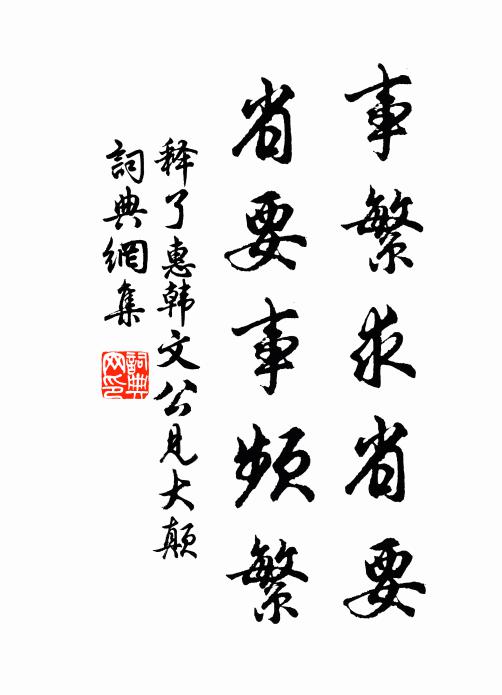 事繁求省要
省要事頻繁
释了惠韩文公见大颠
詞典網集
詞典網印